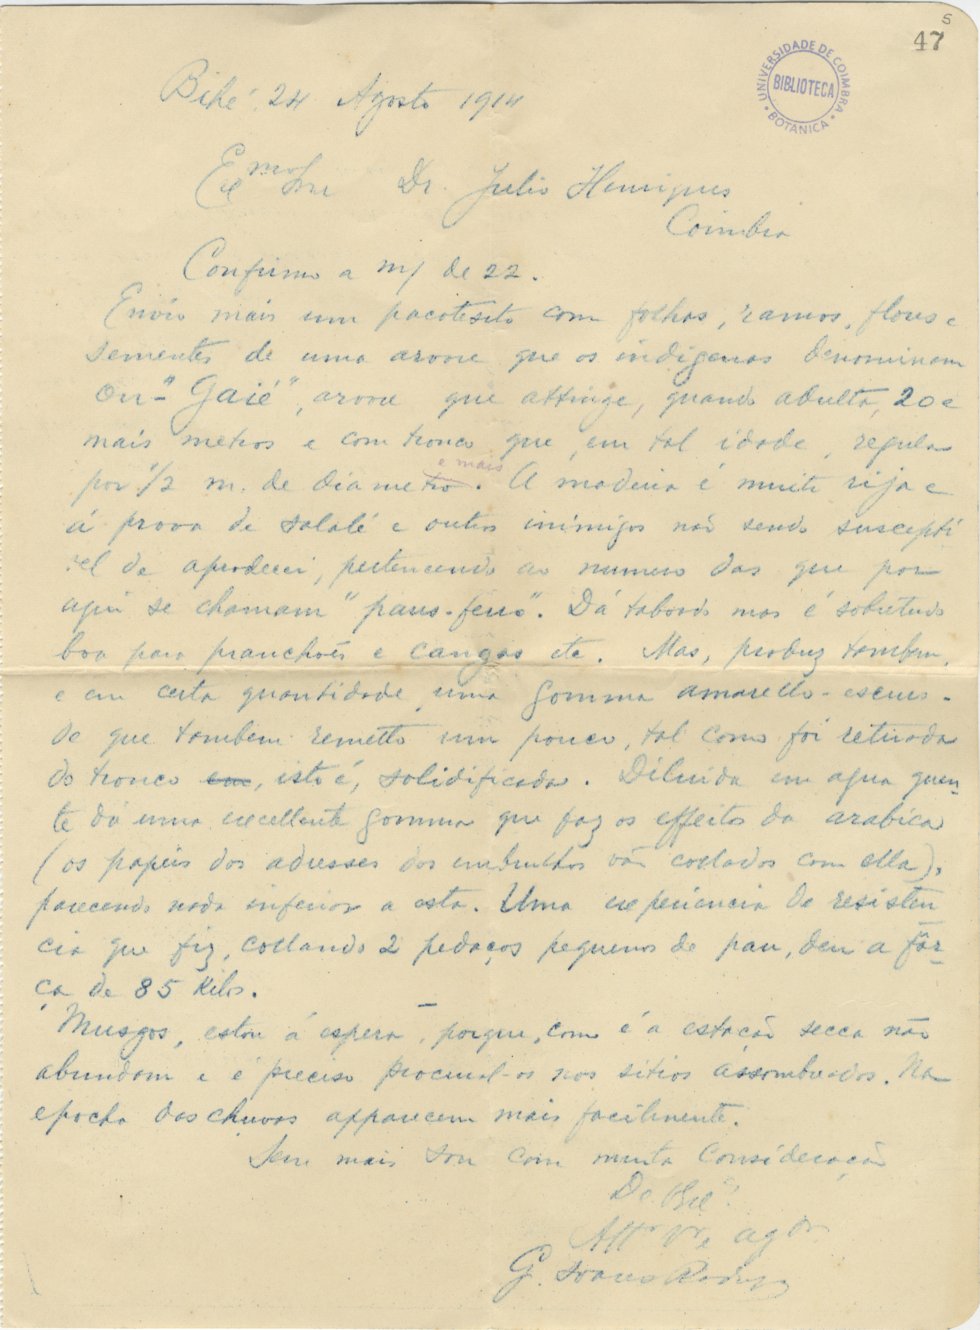 5
47
UNIVERSIDADE DE COIMBRA
BIBLIOTECA
BOTANICA
Bihé 24 Agosto 1914
Exmo Snr Dr. Julio Henriques
Coimbra
Confirmo a m/ de 22.
Envio mais um pacotesito com folhas, ramos, flores e
sementes de uma arvore que os indigenas denominam
On-"Gaié", arvore que attinge, quando adulta, 20 e
mais metros e com tronco que, em tal idade, regula
por 1/2 m. de diametro e mais. A madeira é muito rija e
á prova de salalé e outros inimigos não sendo suscepti-
vel de apodrecer, pertencendo ao numero das que por
aqui se chamam "paus-ferro". Dá taboado mas é sobretudo
boa para pranchões e cangas etc. Mas, produz tambem,
e em certa quantidade, uma gomma amarello-escuro.
de que tambem remetto um pouco, tal como foi retirada
do tronco em, isto é, solidificada. Diluida em agua quen-
te dá uma excellente gomma que faz os effeitos da arabica
(os papeis dos adresses dos embrulhos vão collados com ella),
parecendo nada inferior a esta. Uma experiencia de resisten
cia que fiz, collando 2 pedaços pequenos de pau, deu a fôr-
ça de 85 Kilos.
Musgos, estou á espera, porque, com é a estação secca não
abundam e é preciso procural-os nos sitios assombreados. Na
epocha das chuvas apparecem mais facilmente.
Sem mais sou com muita Consideração
De V. Exª
Attº Vr e agdº
G. Soares Rodrigues